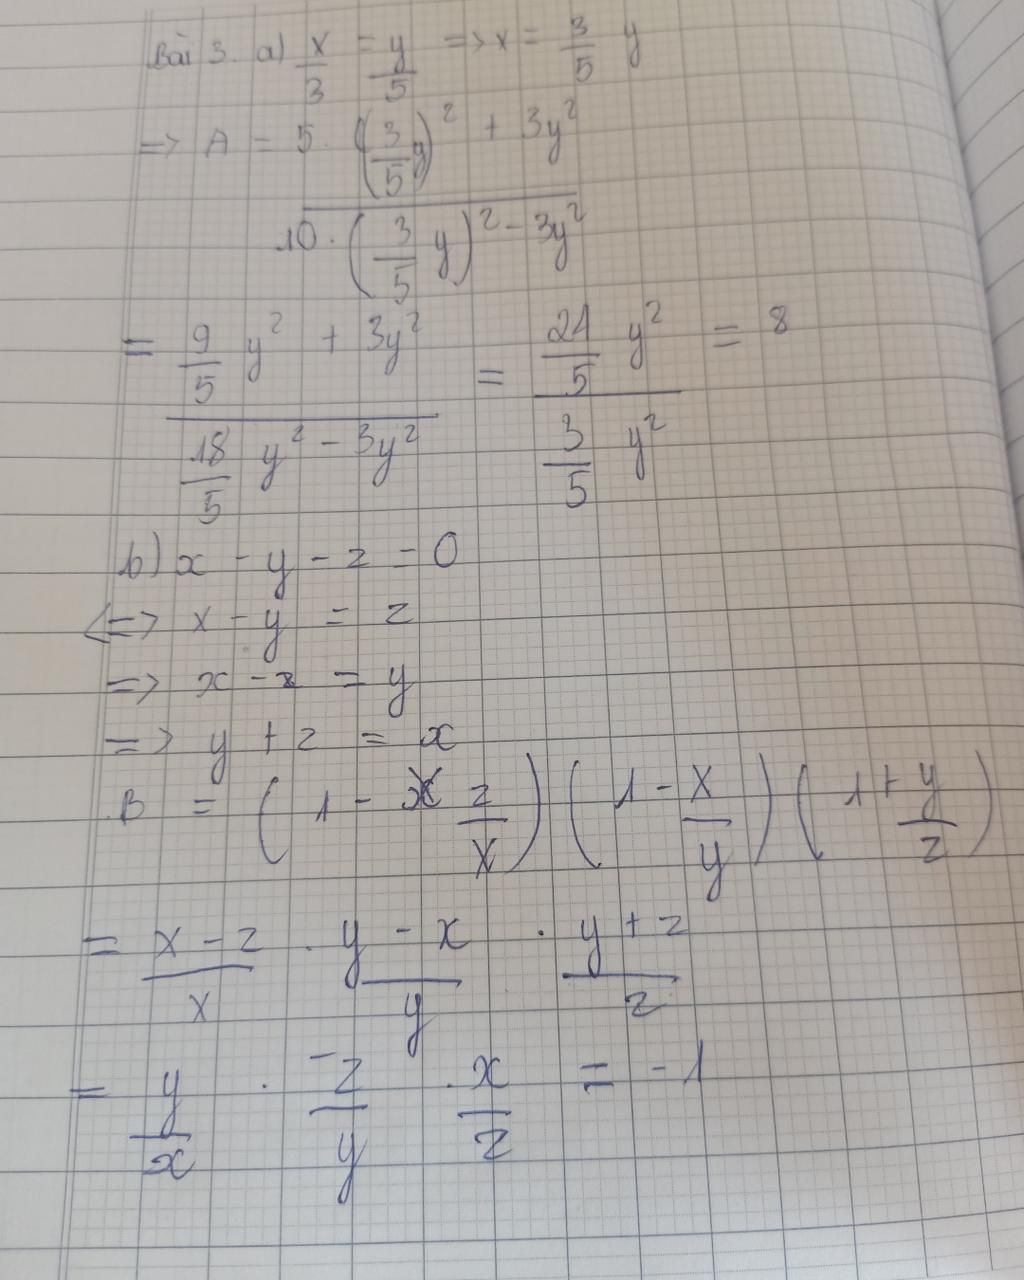 Bài 3. a) x/3 = y/5 => x = 3/5 y
=> A = (5 . (3/5 y)² + 3y²) / (10 . (3/5 y)² - 3y²)
= (9/5 y² + 3y²) / (18/5 y² - 3y²) = (24/5 y²) / (3/5 y²) = 8
b) x - y - z = 0
<=> x - y = z
=> x - z = y
=> y + z = x
B = (1 - z/x) (1 - x/y) (1 + y/z)
= (x - z)/x . (y - x)/y . (y + z)/z
= y/x . -z/y . x/z = -1